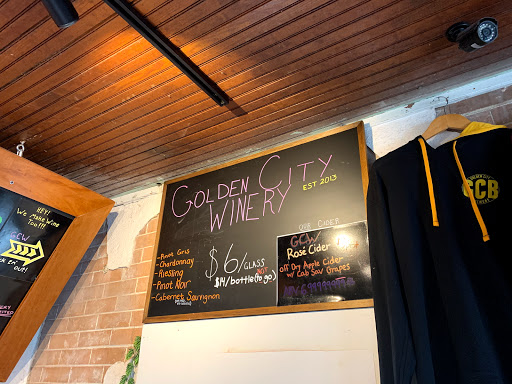 HEY!
We Make Wine
Too!!
GCW
OUT!
GOLDEN CITY
WINERY
EST 2013
- Pinot Gris
- Chardonnay
- Riesling
- Pinot Noir
- Cabernet Sauvignon
$6/GLASS
$14/bottle (to go)
OUR CIDER
GCW
Rosé Cider
Off Dry Apple Cider
w/ Cab Sav Grapes
GCB